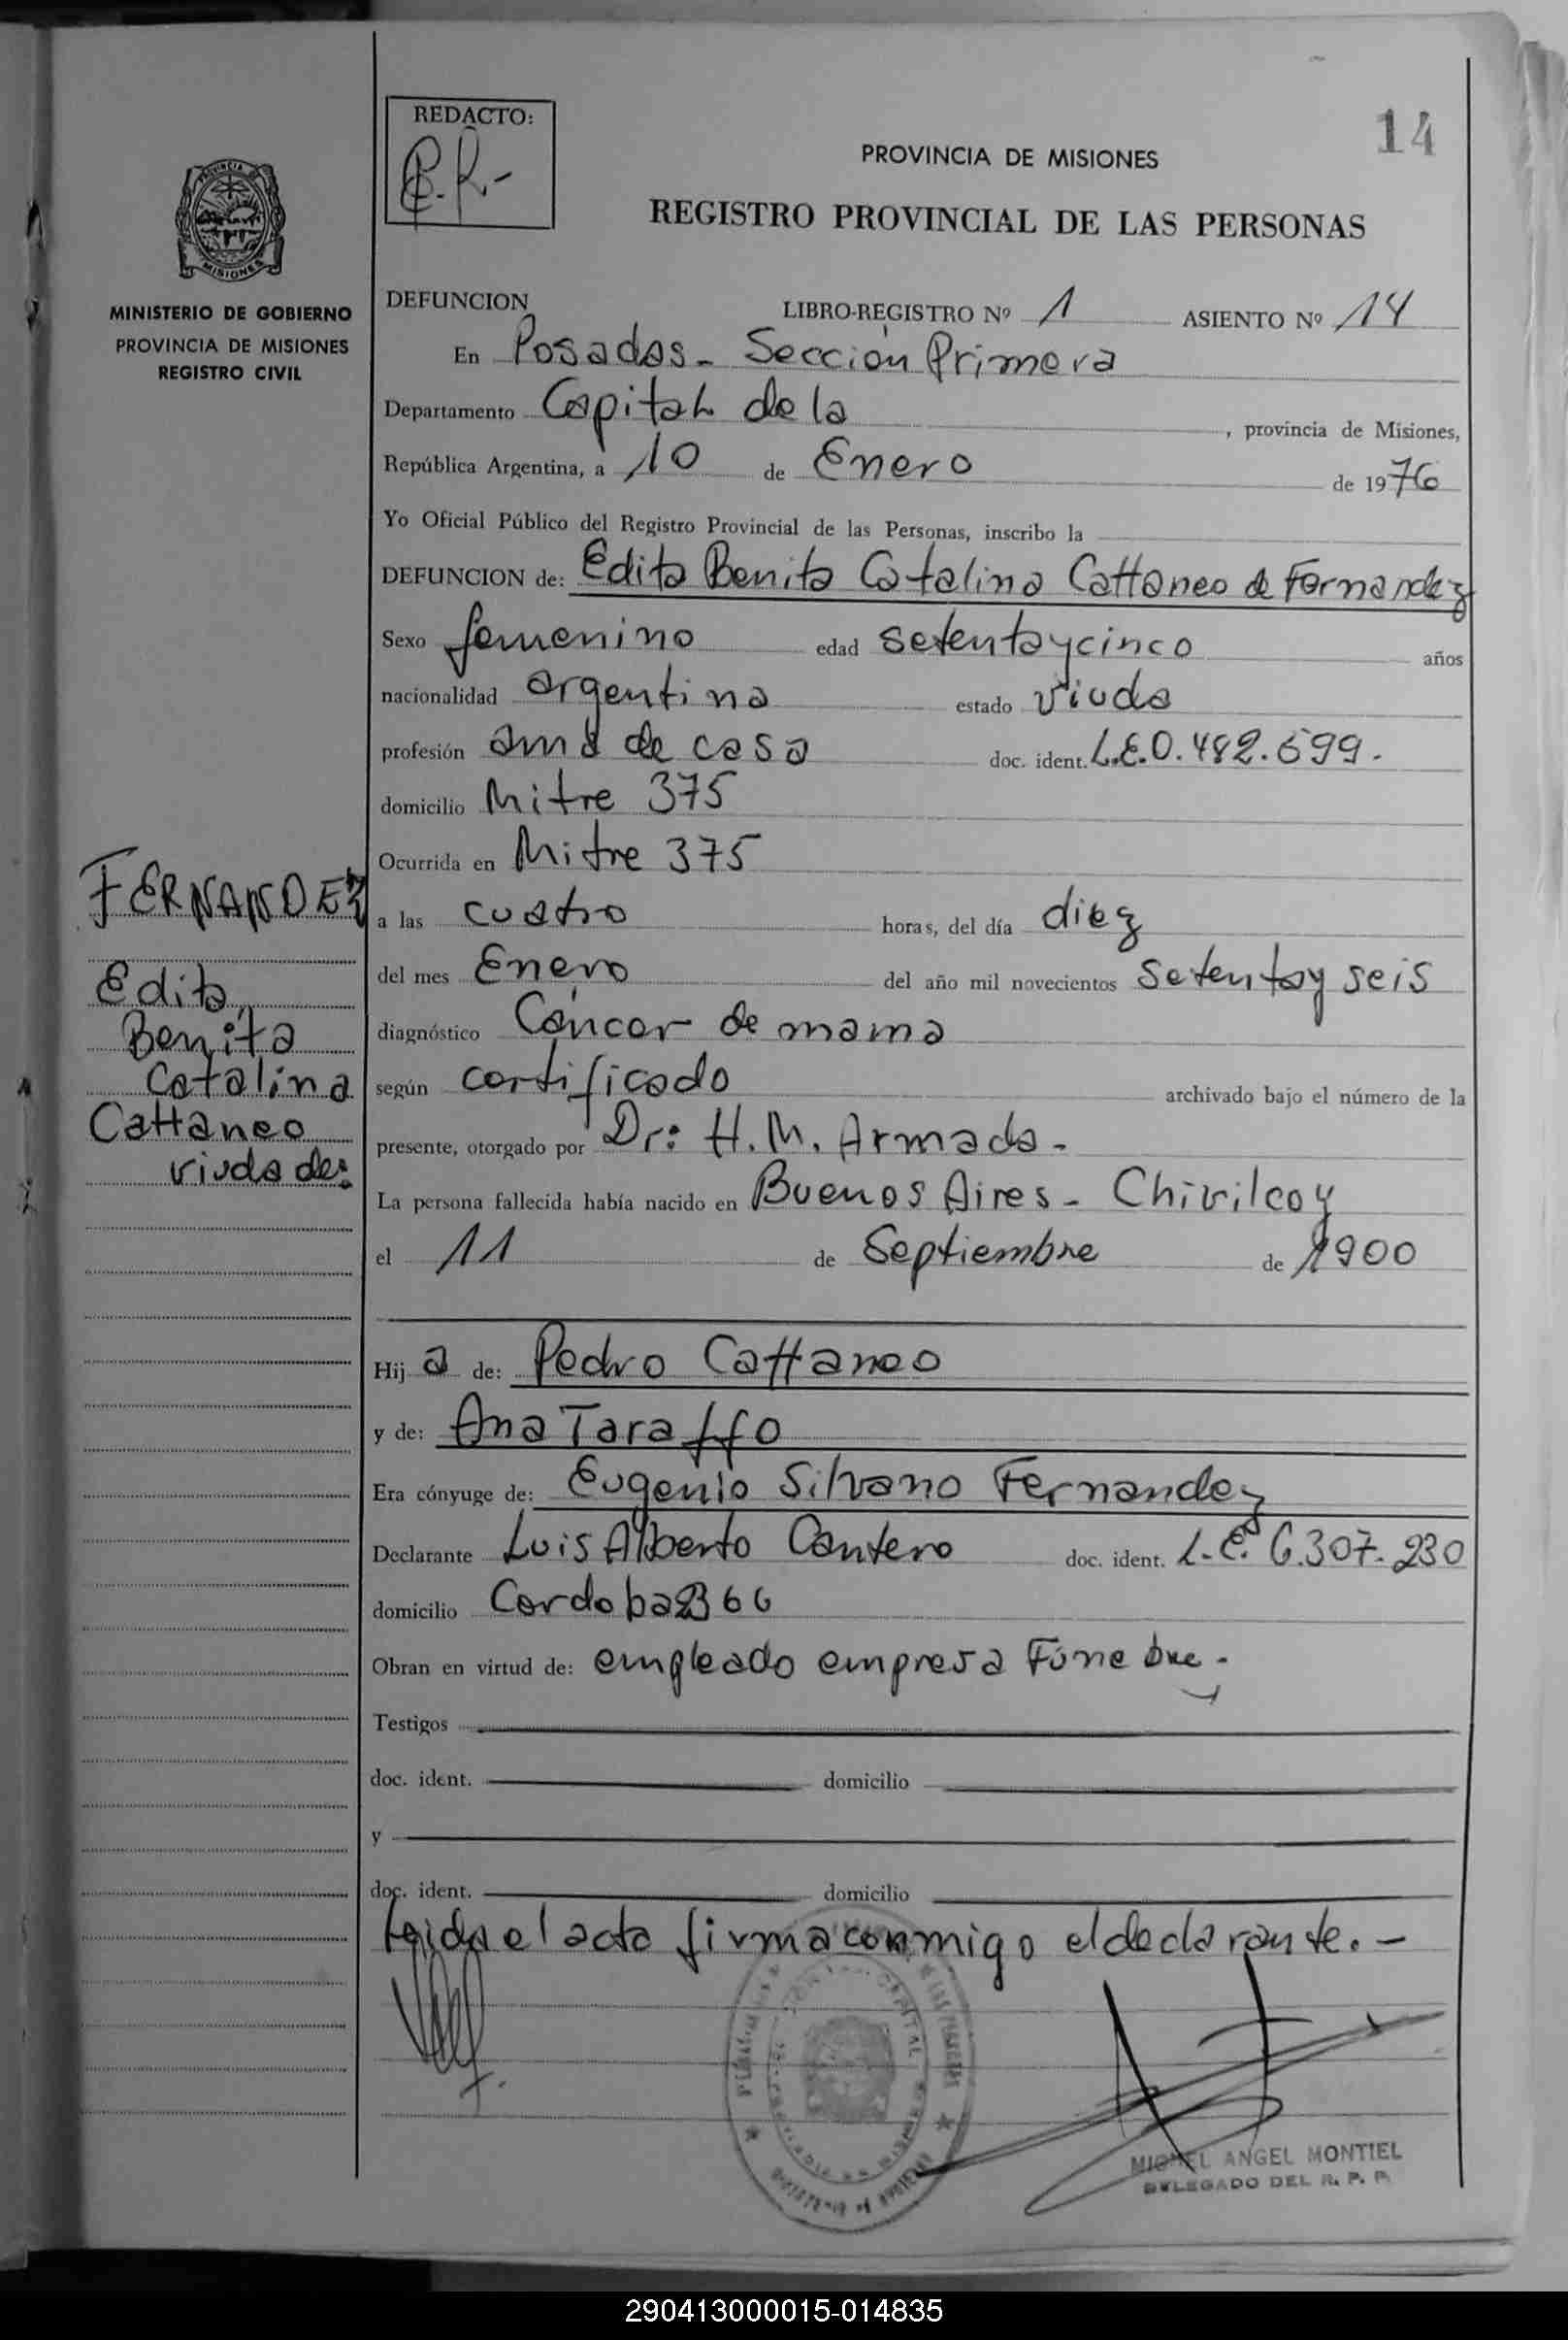 14
REDACTO:
PROVINCIA DE MISIONES
REGISTRO PROVINCIAL DE LAS PERSONAS
MISIONES
MINISTERIO DE GOBIERNO
PROVINCIA DE MISIONES
REGISTRO CIVIL
DEFUNCION LIBRO-REGISTRO Nº 1 ASIENTO Nº 14
En Posadas - Sección Primera
Departamento Capital de la , provincia de Misiones,
República Argentina, a 10 de Enero de 1976
Yo Oficial Público del Registro Provincial de las Personas, inscribo la
DEFUNCION de: Edita Benita Catalina Cattaneo de Fernandez
Sexo femenino edad setentaycinco años
nacionalidad argentina estado viuda
profesión ama de casa doc. ident. L.E.0.482.699.
domicilio Mitre 375
Ocurrida en Mitre 375
a las cuatro horas, del día diez
del mes Enero del año mil novecientos setentay seis
diagnóstico Cáncer de mama
según certificado archivado bajo el número de la
presente, otorgado por Dr: H.M. Armada -
La persona fallecida había nacido en Buenos Aires - Chivilcoy
el 11 de Septiembre de 1900
FERNANDEZ
Edita
Benita
Catalina
Cattaneo
viuda de:
Hij a de: Pedro Cattaneo
y de: Ana Taraffo
Era cónyuge de: Eugenio Silvano Fernandez
Declarante Luis Alberto Cantero doc. ident. L.E. 6.307.230
domicilio Cordoba 2366
Obran en virtud de: empleado empresa Fúnebre -
Testigos
doc. ident. domicilio
y
doc. ident. domicilio
Leida el acta firma conmigo el declarante. -
MIGUEL ANGEL MONTIEL
DELEGADO DEL R. P. P.
290413000015-014835